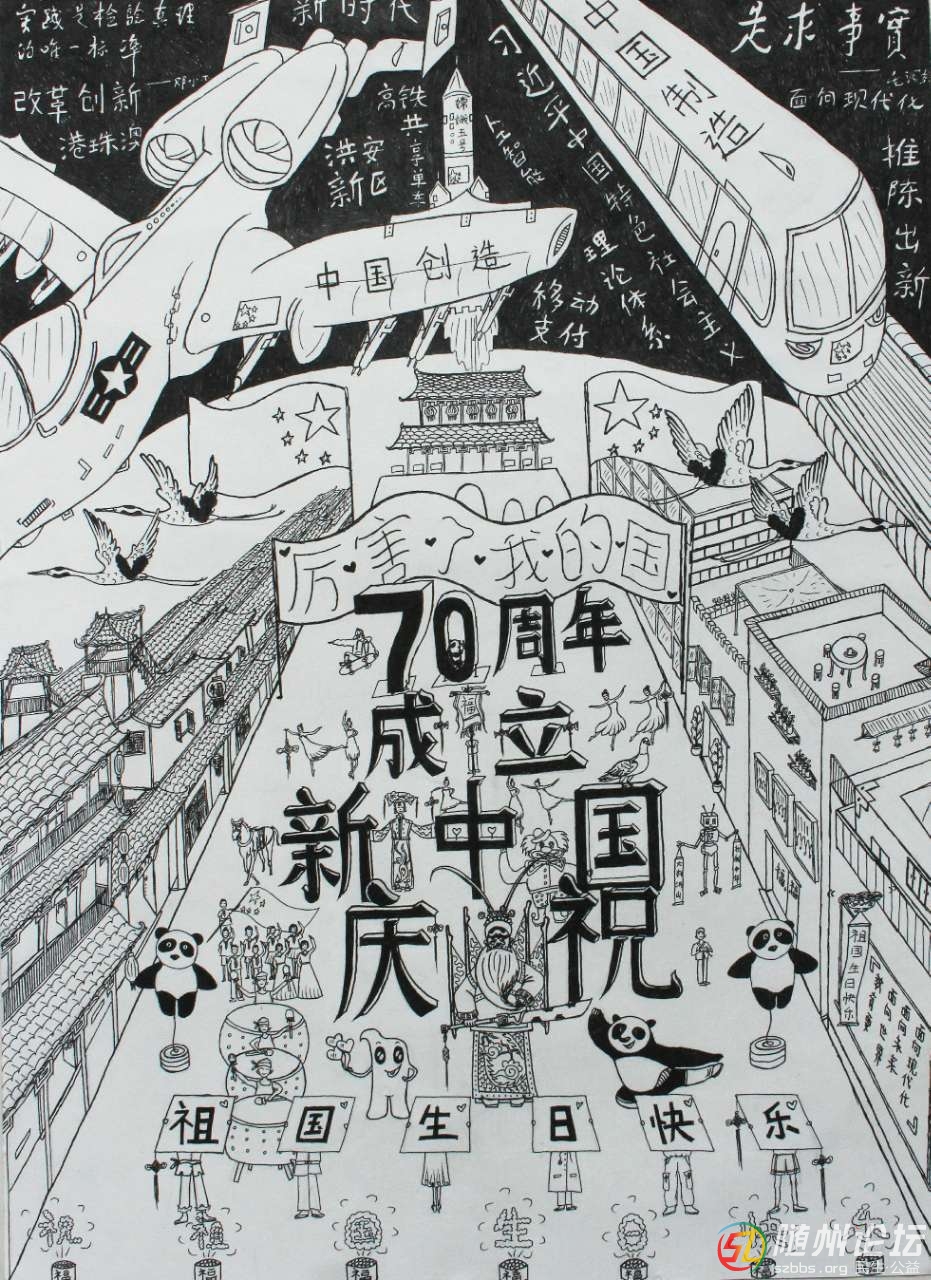 实践是检验真理
的唯一标准
改革创新
港珠澳
新时代
高铁
共享单车
洪安
新区
嫦娥五号
习近平中国特色社会主义
理论体系
移动
支付
中国制造
是求事實
面向现代化
推陈出新
中国创造
厉害了我的国
70周年
成立
新中国
庆祝
福
祖国生日快乐
教育要
面向现代化
面向世界
面向未来
祖国生日快乐
祝 福 国 生 日 快 乐
福 福 福 福 福 福 福
随州论坛
szbbs.org 民生·公益